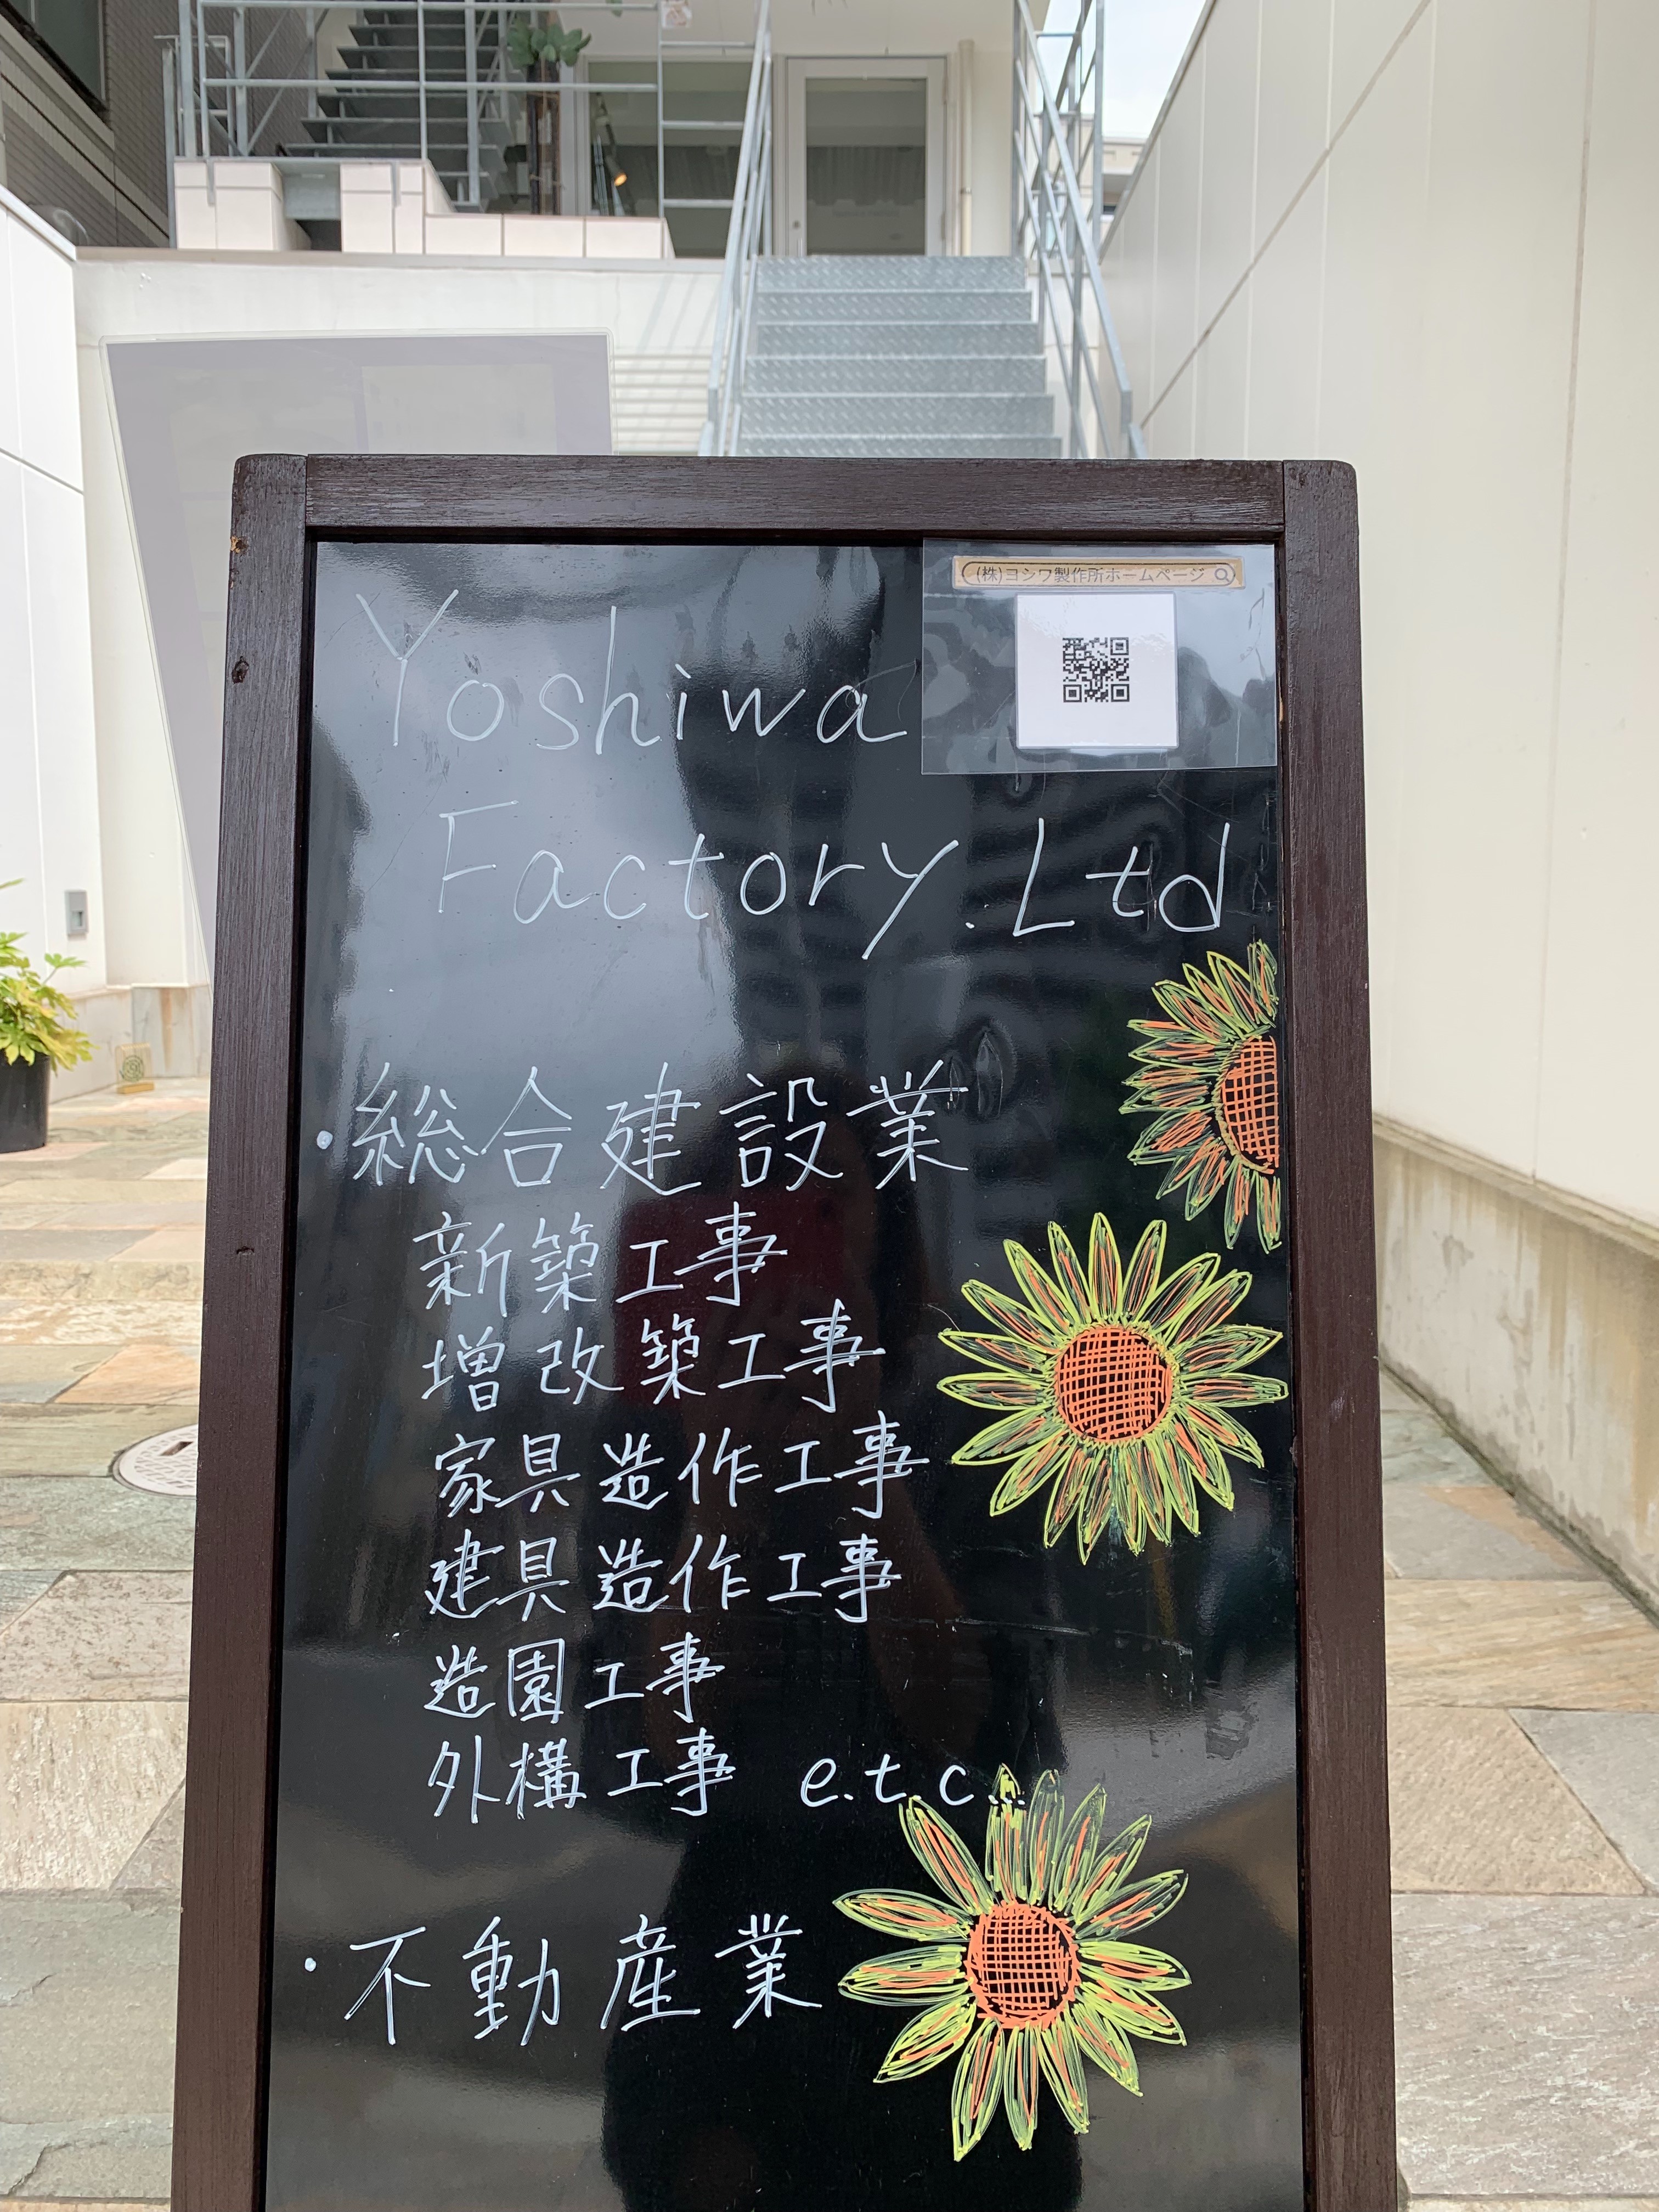 (株)ヨシワ製作所ホームページ
Yoshiwa
Factory.Ltd
・総合建設業
新築工事
増改築工事
家具造作工事
建具造作工事
造園工事
外構工事 e.t.c...
・不動産業